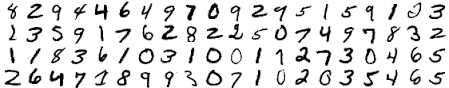 8 2 9 4 4 6 4 9 7 0 9 2 9 5 1 5 9 1 0 3
2 3 5 9 1 7 6 2 8 2 2 5 0 7 4 9 7 8 3 2
1 1 8 3 6 1 0 3 1 0 0 1 1 2 7 3 0 4 6 5
2 6 4 7 1 8 9 9 3 0 7 1 0 2 0 3 5 4 6 5